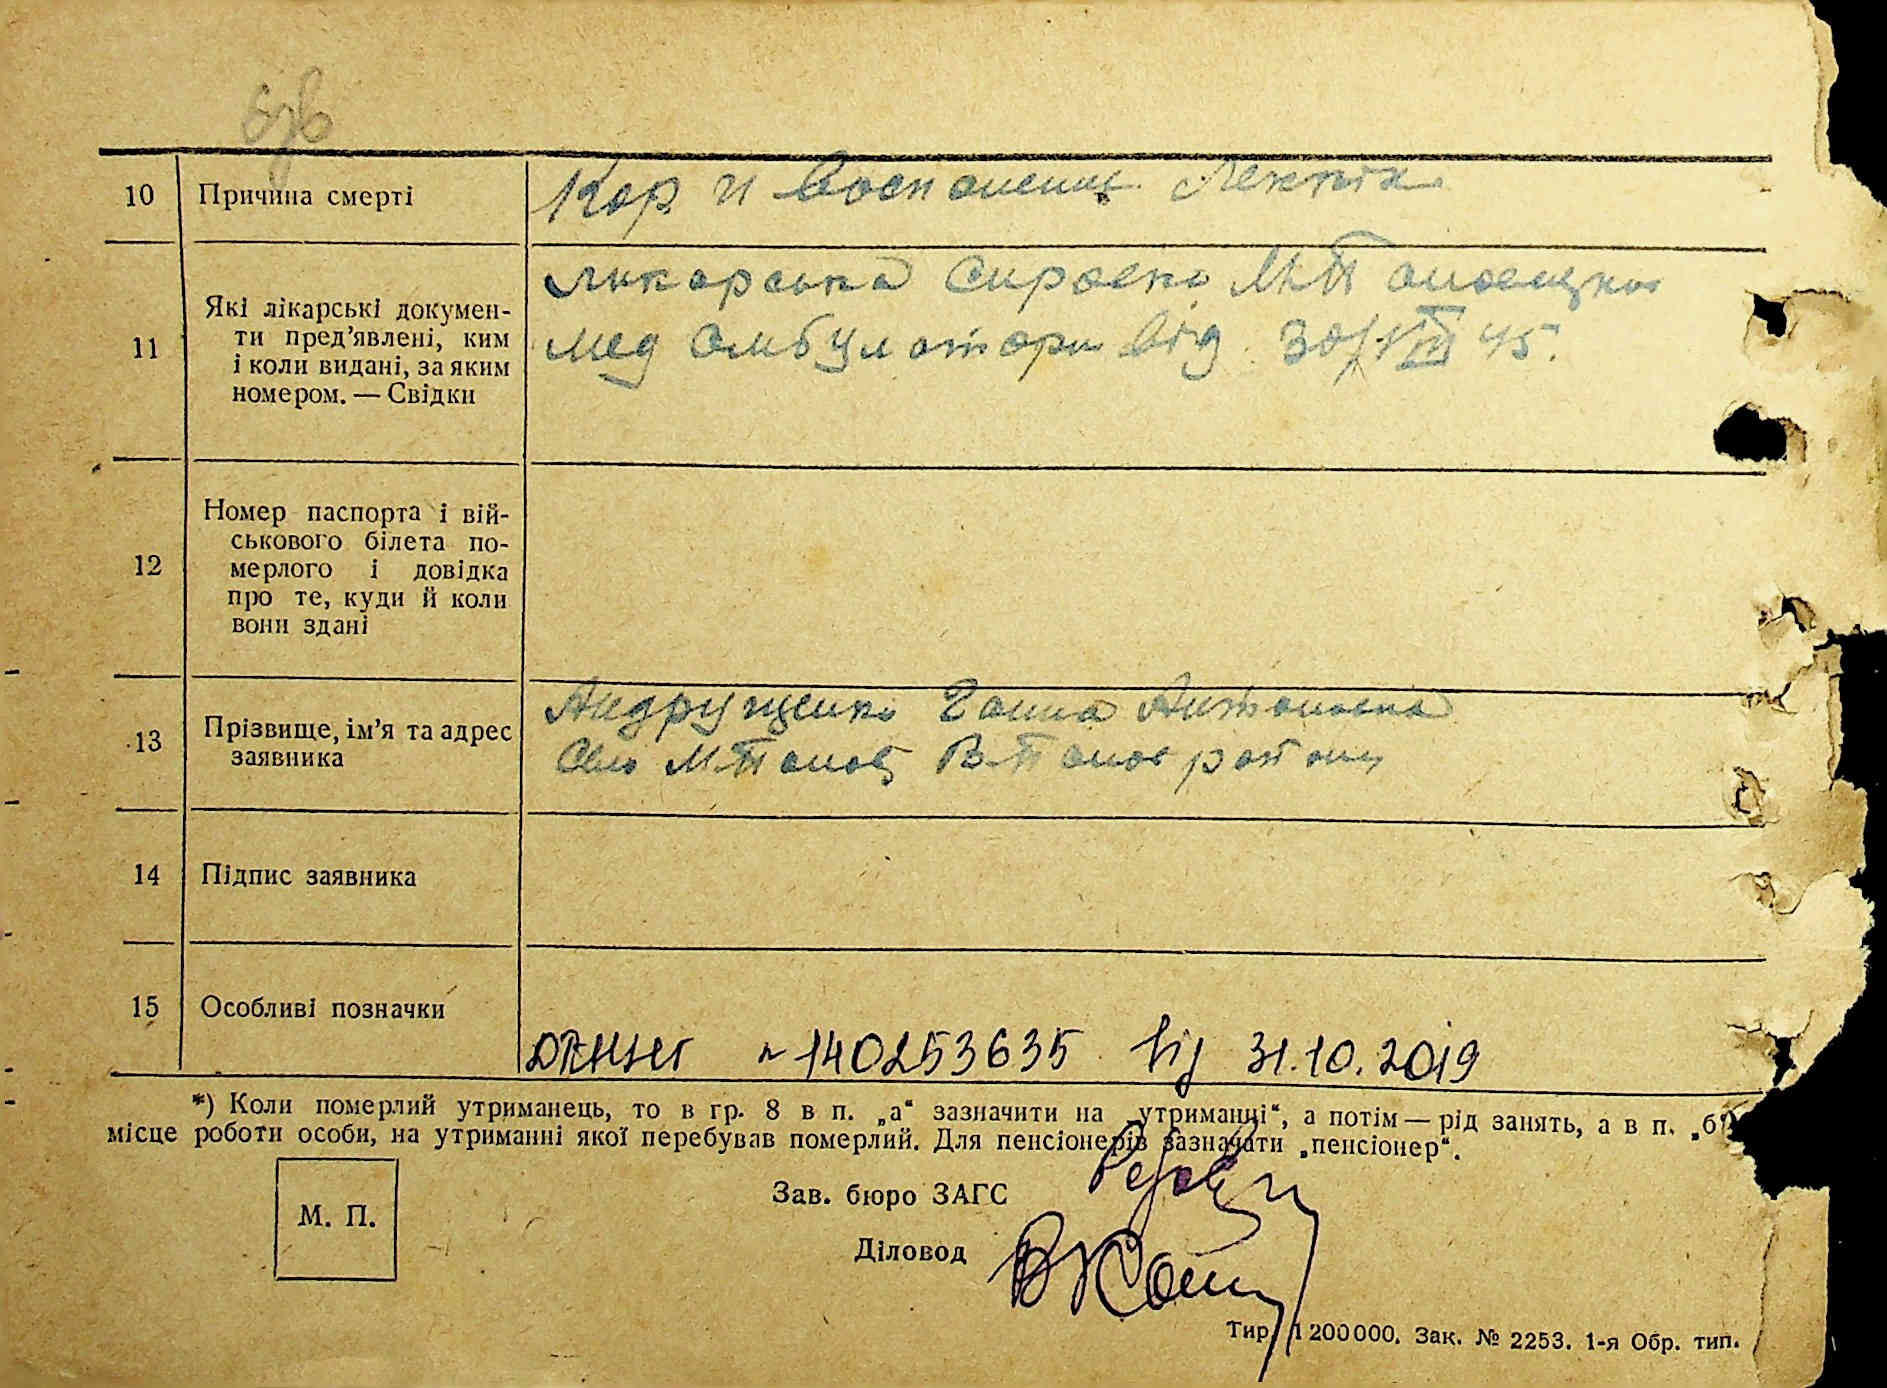 10 Причина смерті Кор и Воспалении Легких
11 Які лікарські докумен-
ти пред'явлені, ким
і коли видані, за яким
номером. — Свідки
Лікарська Справка М-Половецкої
мед Амбулаторії від 30/VIII 45.
12 Номер паспорта і вій-
ськового білета по-
мерлого і довідка
про те, куди й коли
вони здані
13 Прізвище, ім'я та адрес
заявника
Андрущенко Ганна Антоновна
Село М-Полов В-Полов району
14 Підпис заявника
15 Особливі позначки
№ 140253635 від 31.10.2019
*) Коли померлий утриманець, то в гр. 8 в п. „а“ зазначити на „утриманні“, а потім — рід занять, а в п. „б“
місце роботи особи, на утриманні якої перебував померлий. Для пенсіонерів зазначати „пенсіонер“.
М. П.
Зав. бюро ЗАГС
Діловод
Тир. 1200000. Зак. № 2253. 1-я Обр. тип.